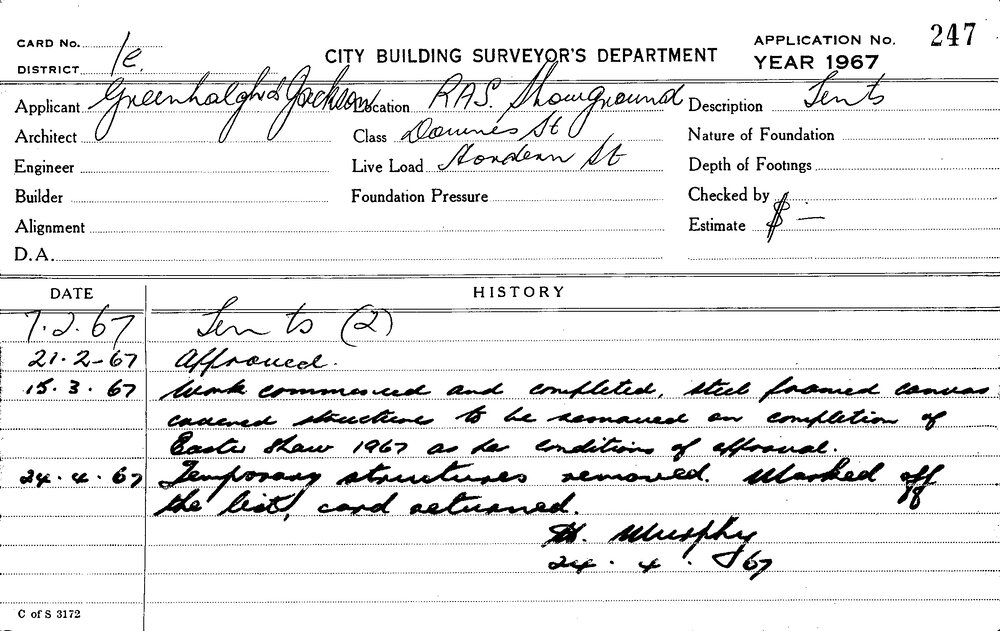 CARD No. 1e.
DISTRICT
CITY BUILDING SURVEYOR'S DEPARTMENT
APPLICATION No. 247
YEAR 1967
Applicant Greenhalgh & Jackson Location RAS. Showground Description Tents
Architect Class Downes St Nature of Foundation
Engineer Live Load Hordern St Depth of Footings
Builder Foundation Pressure Checked by
Alignment Estimate $ —
D.A.
DATE HISTORY
7.2.67 Tents (2)
21.2-67 Approved.
15.3.67 Work commenced and completed, steel framed canvas
covered structures to be removed on completion of
Easter Show 1967 as per conditions of approval.
24.4.67 Temporary structures removed. Marked off
the list, card returned.
H. Murphy
24.4.67
C of S 3172